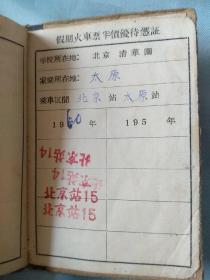 假期火車票半價優待憑証
學校所在地: 北京 清華園
家庭所在地: 太原
乘車区間 北京 站 太原 站
1960年 195 年
北京站14
北京站14
北京站15
北京站15